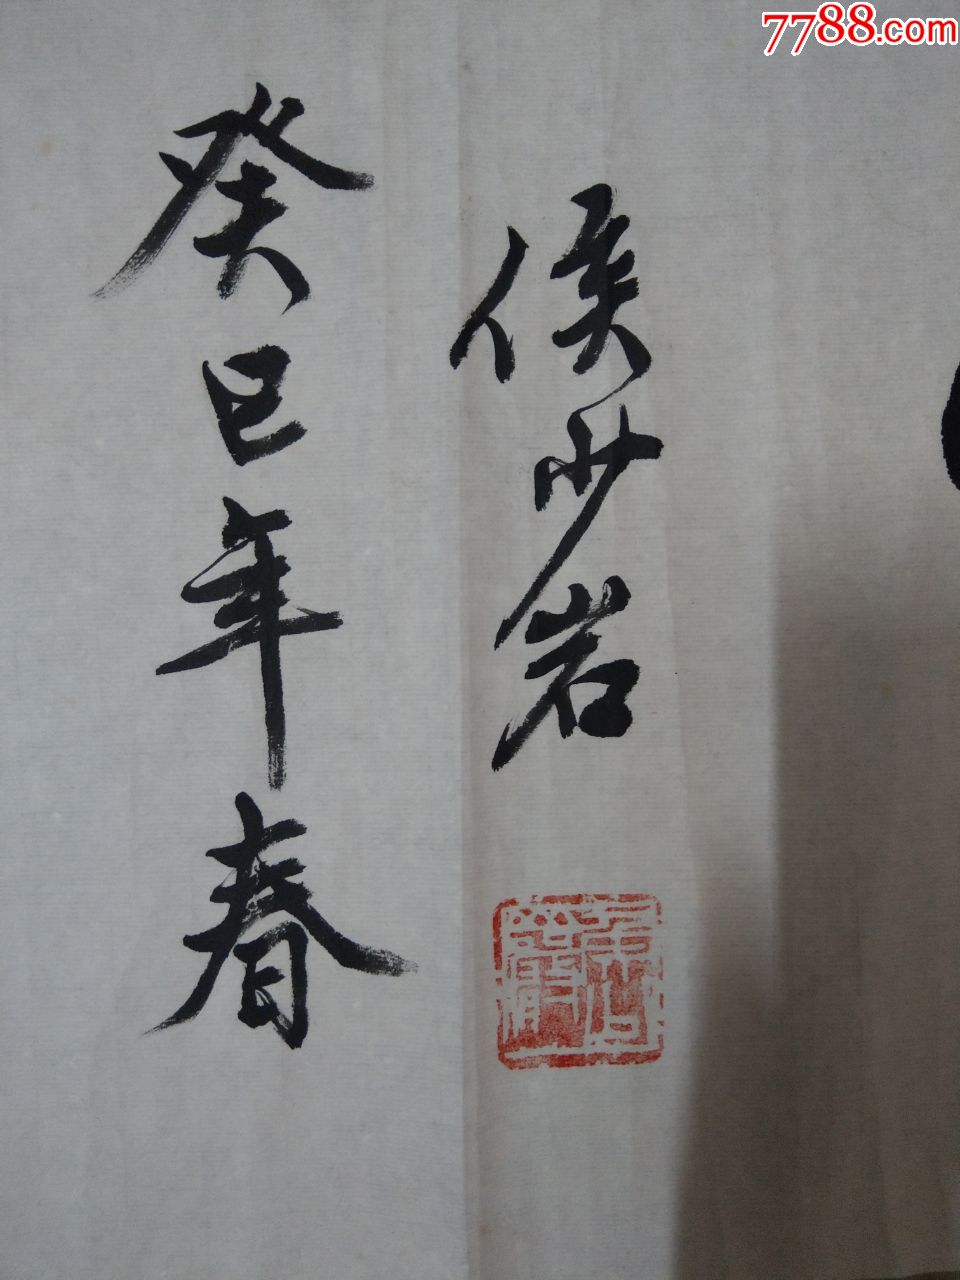 7788.com
侯少岩
癸巳年春